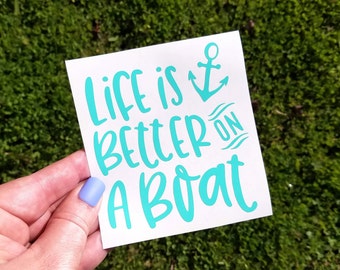 LiFE iS
BETTER ON
A BOat